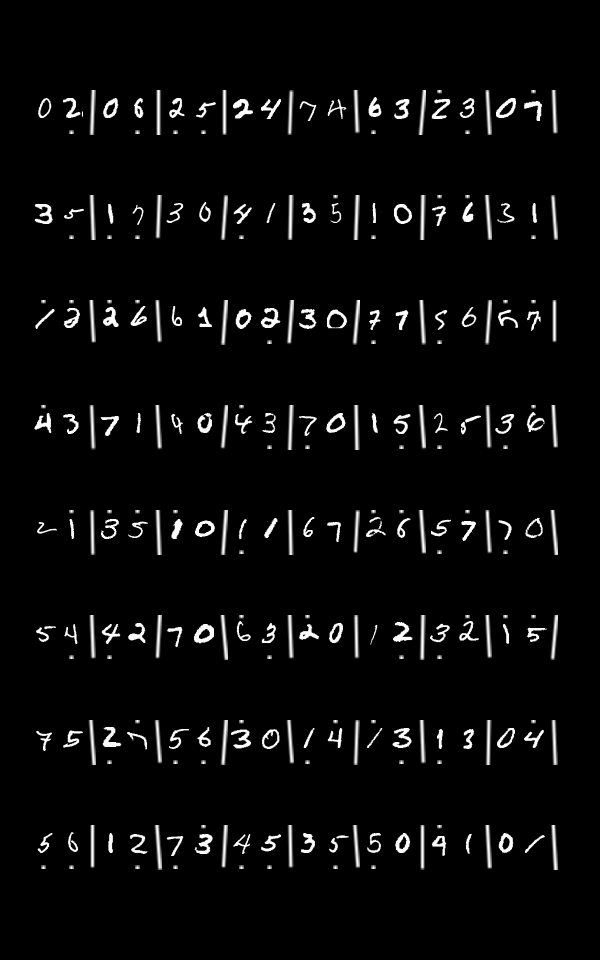 0 2 | 0 6 | 2 5 | 2 4 | 7 4 | 6 3 | 2 3 | 0 7 |
3 5 | 1 7 | 3 0 | 4 1 | 3 5 | 1 0 | 7 6 | 3 1 |
1 2 | 2 6 | 6 1 | 0 2 | 3 0 | 7 7 | 5 6 | 5 7 |
4 3 | 7 1 | 4 0 | 4 3 | 7 0 | 1 5 | 2 5 | 3 6 |
2 1 | 3 5 | 1 0 | 1 1 | 6 7 | 2 6 | 5 7 | 7 0 |
5 4 | 4 2 | 7 0 | 6 3 | 2 0 | 1 2 | 3 2 | 1 5 |
7 5 | 2 7 | 5 6 | 3 0 | 1 4 | 1 3 | 1 3 | 0 4 |
5 6 | 1 2 | 7 3 | 4 5 | 3 5 | 5 0 | 4 1 | 0 1 |